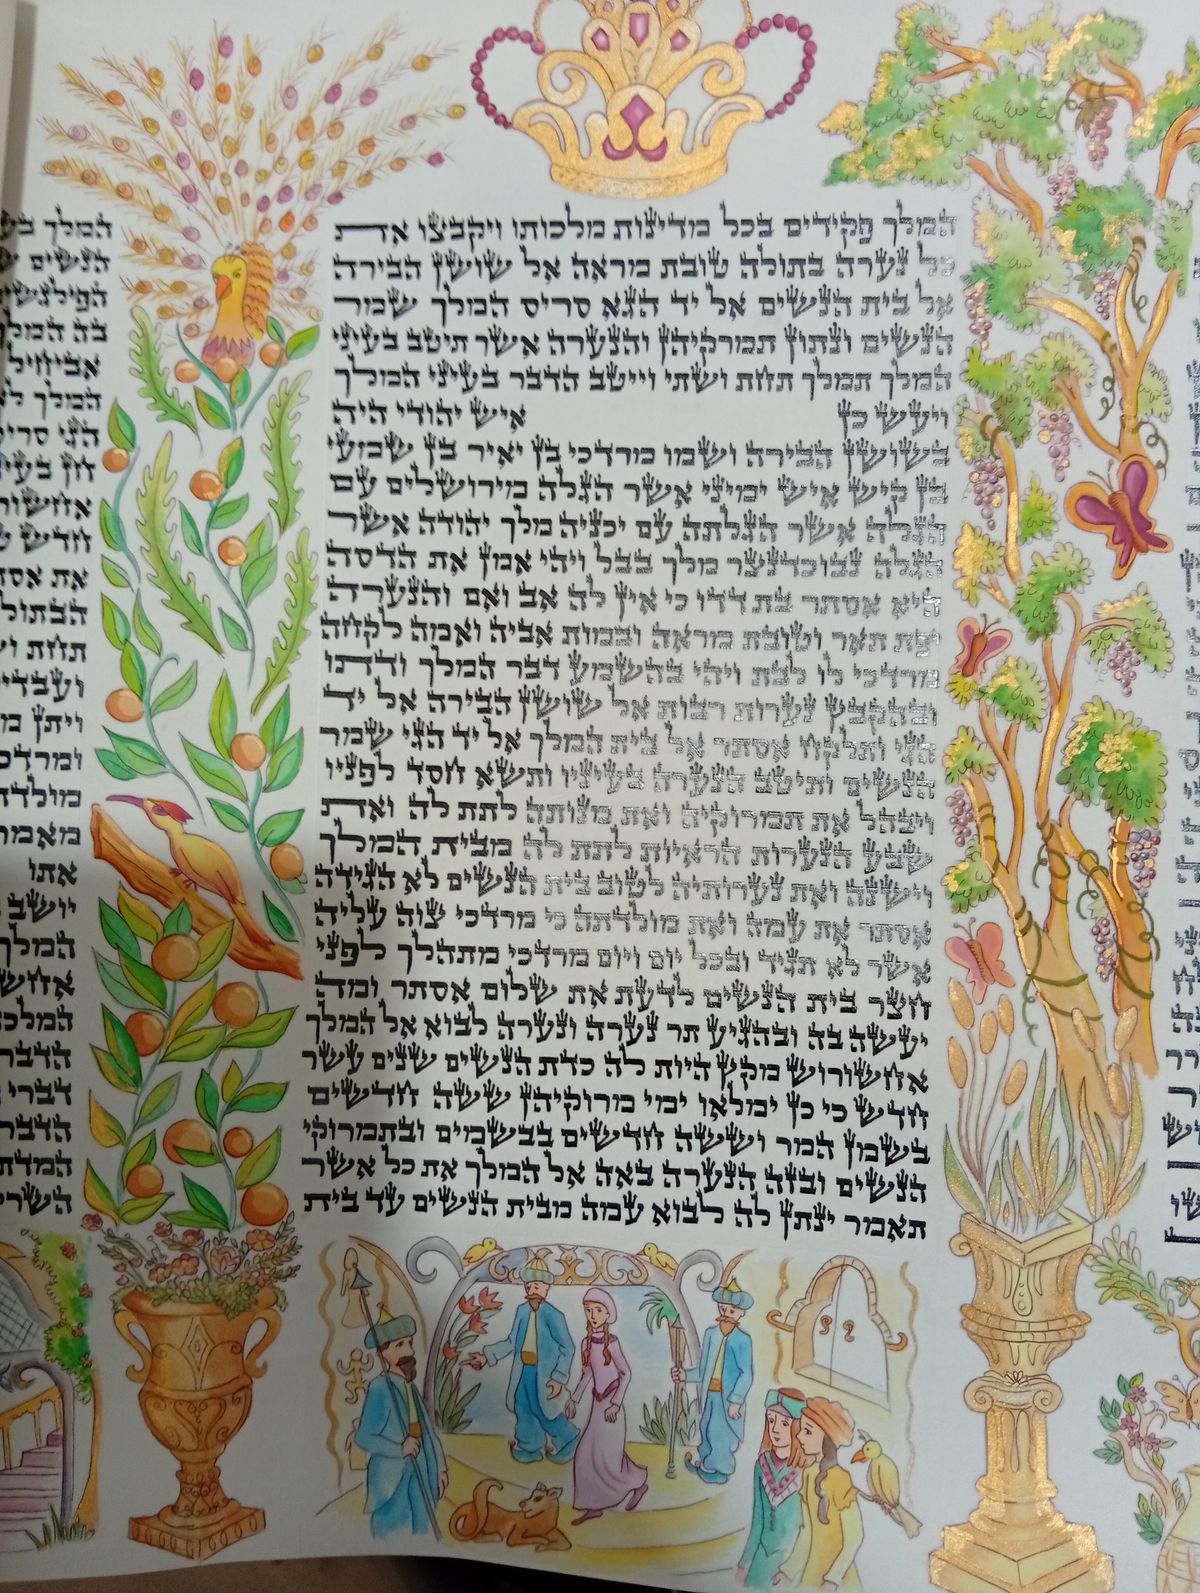 המלך פקידים בכל מדינות מלכותו ויקבצו את
כל נערה בתולה טובת מראה אל שושן הבירה
אל בית הנשים אל יד הגא סריס המלך שמר
הנשים ונתון תמרקיהן והנערה אשר תיטב בעיני
המלך תמלך תחת ושתי וייטב הדבר בעיני המלך
ויעש כן איש יהודי היה
בשושן הבירה ושמו מרדכי בן יאיר בן שמעי
בן קיש איש ימיני אשר הגלה מירושלים עם
הגלה אשר הגלתה עם יכניה מלך יהודה אשר
הגלה נבוכדנצר מלך בבל ויהי אמן את הדסה
היא אסתר בת דדו כי אין לה אב ואם והנערה
יפת תאר וטובת מראה ובמות אביה ואמה לקחה
מרדכי לו לבת ויהי בהשמע דבר המלך ודתו
ובהקבץ נערות רבות אל שושן הבירה אל יד
הגי ותלקח אסתר אל בית המלך אל יד הגי שמר
הנשים ותיטב הנערה בעיניו ותשא חסד לפניו
ויבהל את תמרוקיה ואת מנותה לתת לה ואת
שבע הנערות הראיות לתת לה מבית המלך
וישנה ואת נערותיה לטוב בית הנשים לא הגידה
אסתר את עמה ואת מולדתה כי מרדכי צוה עליה
אשר לא תגיד ובכל יום ויום מרדכי מתהלך לפני
חצר בית הנשים לדעת את שלום אסתר ומה
יעשה בה ובהגיע תר נערה ונערה לבוא אל המלך
אחשורוש מקץ היות לה כדת הנשים שנים עשר
חדש כי כן ימלאו ימי מרוקיהן ששה חדשים
בשמן המר וששה חדשים בבשמים ובתמרוקי
הנשים ובזה הנערה באה אל המלך את כל אשר
תאמר ינתן לה לבוא עמה מבית הנשים עד בית
המלך
הנשים
בה
אביחיל
המלך
הגי
חן
חדש
את
תחת
ויתן
אתו
יושב